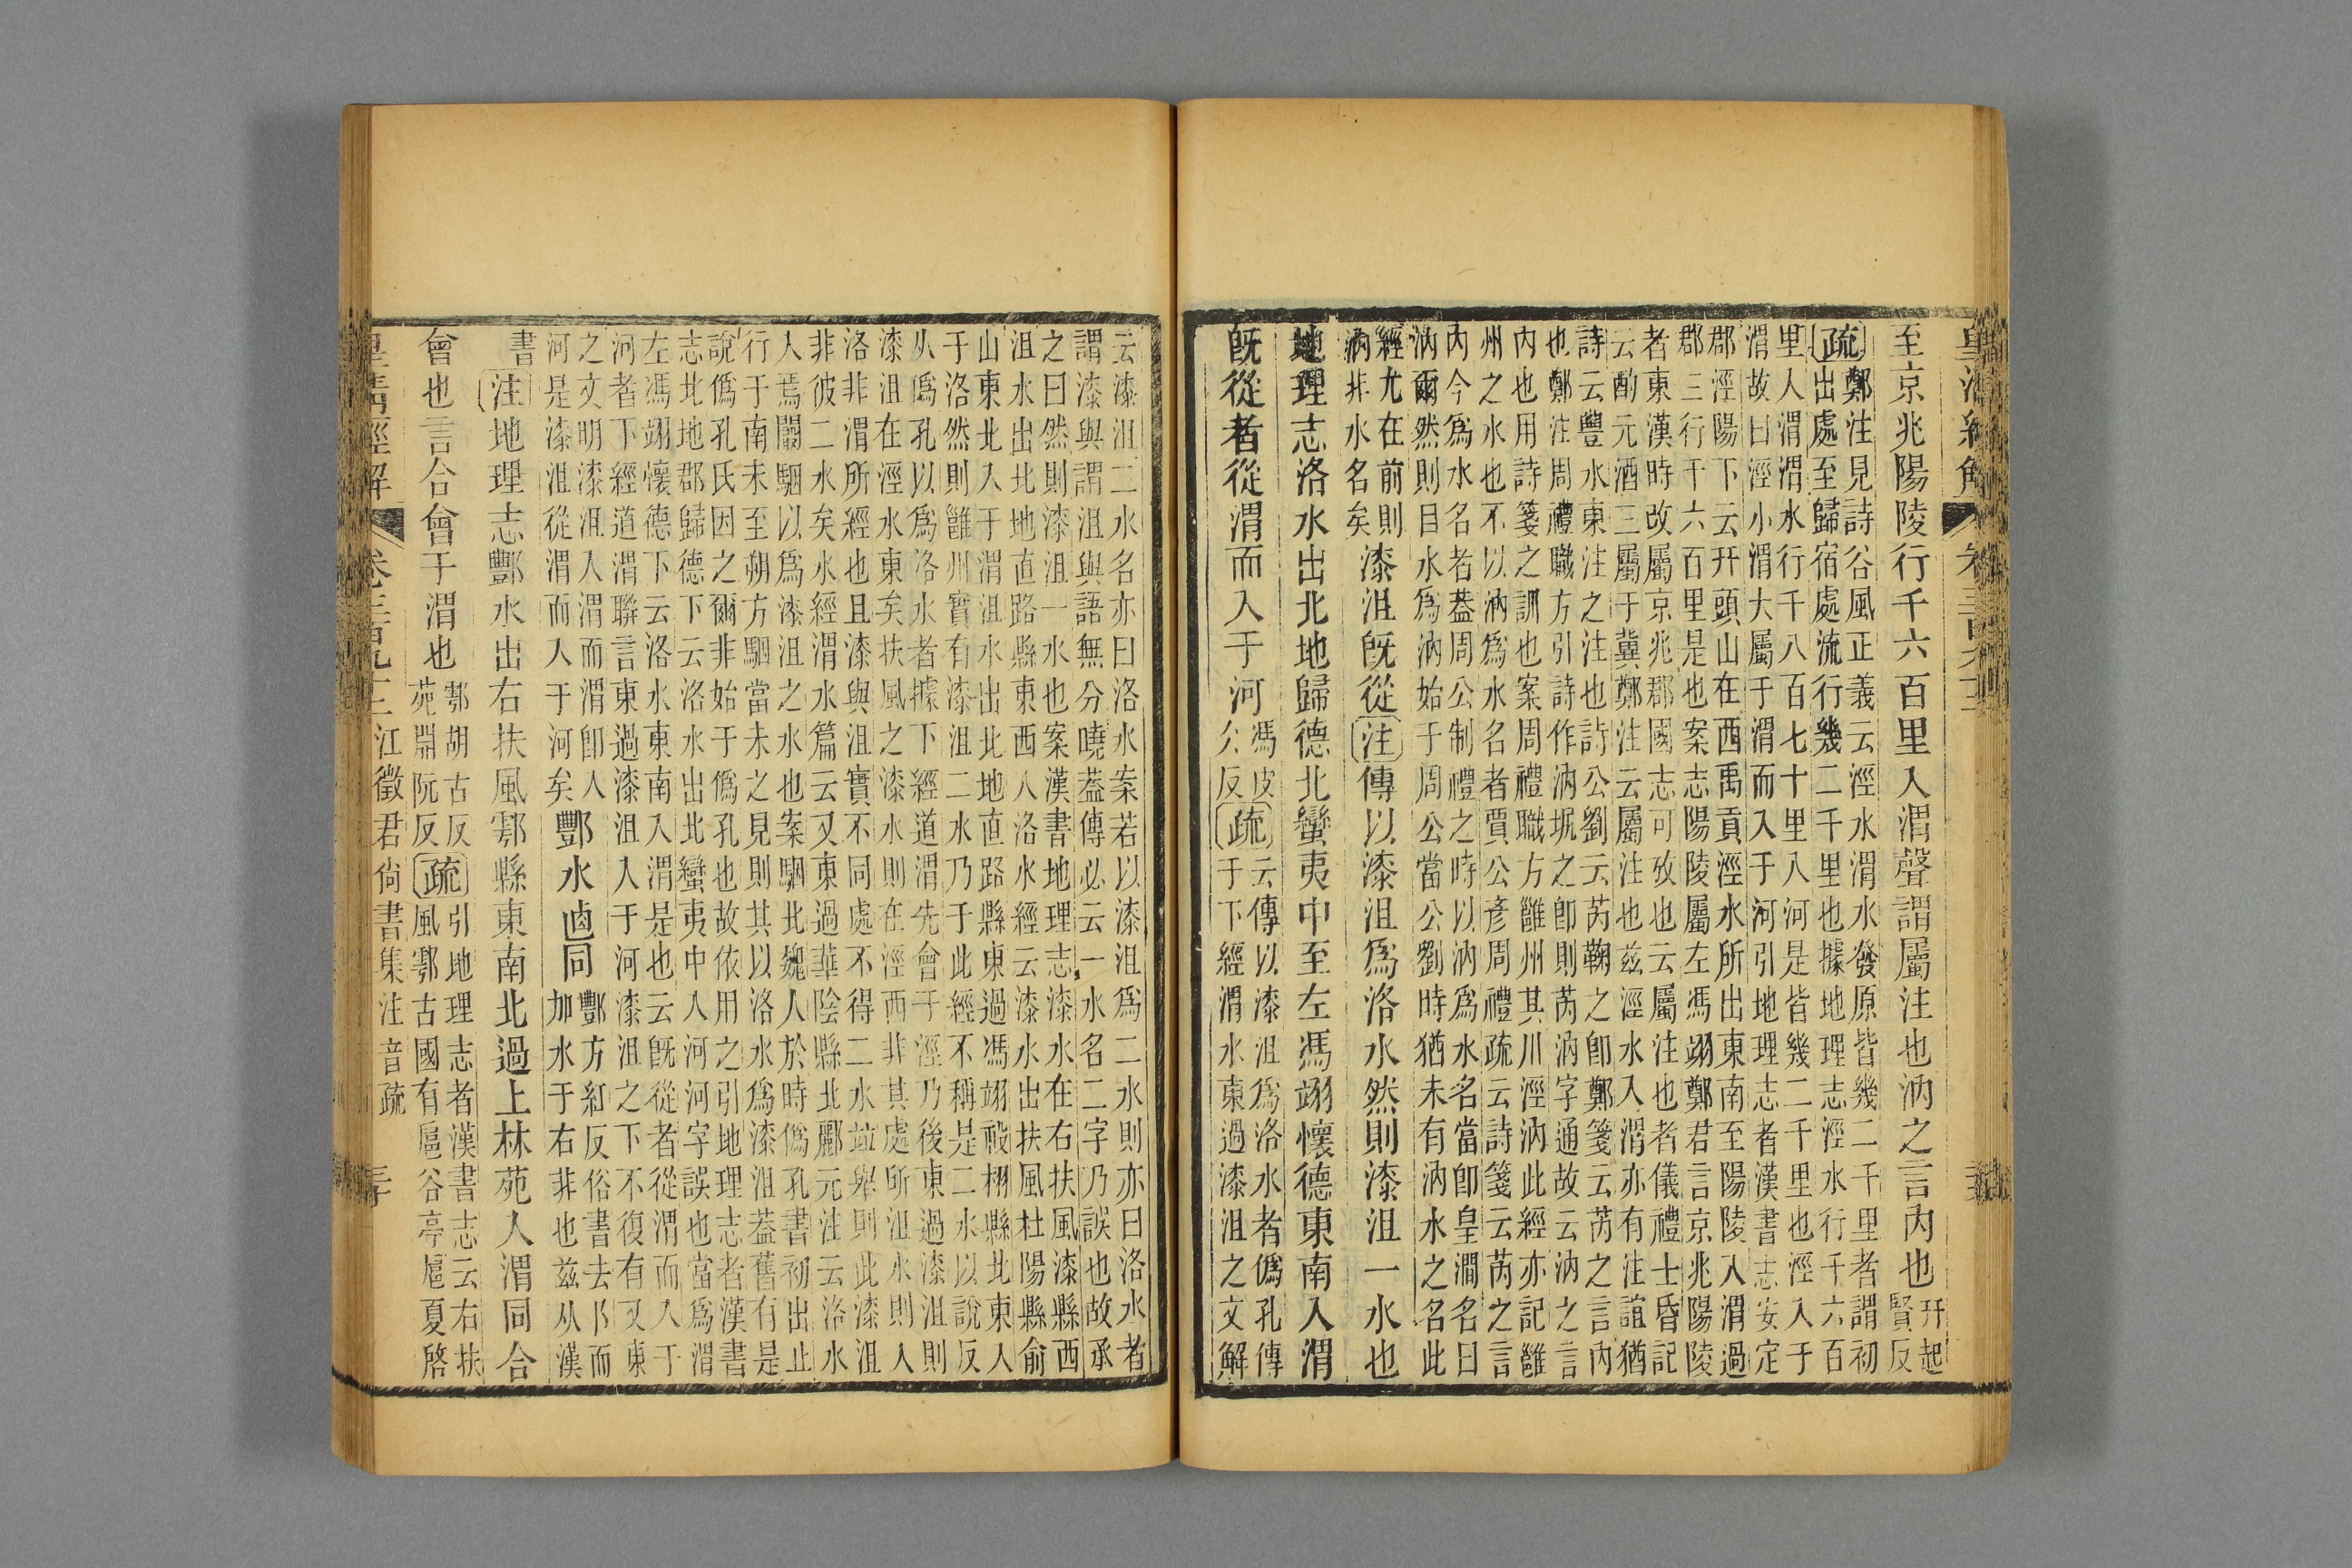 至京兆陽陵行千六百里入渭聲謂屬注也汭之言内也幵起
賢反
疏鄭注見詩谷風正義云涇水渭水發原皆幾二千里者謂初
出處至歸宿處流行幾二千里也據地理志涇水行千六百
里入渭渭水行千八百七十里入河是皆幾二千里也涇入于
渭故曰涇小渭大屬于渭而入于河引地理志者漢書志安定
郡涇陽下云幵頭山在西禹貢涇水所出東南至陽陵入渭過
郡三行千六百里是也案志陽陵屬左馮翊鄭君言京兆陽陵
者東漢時改屬京兆郡國志可攷也云屬注也者儀禮士昏記
云酌元酒三屬于鄭注云屬注也兹涇水入渭亦有注誼猶
詩云豐水東注之注也詩公劉云芮鞫之卽鄭箋云芮之言内
也鄭注周禮職方引詩作汭之卽則芮汭字通故云汭之言
内也用詩箋之訓也案周禮職方雝州其川涇汭此經亦記雝
州之水也不以汭爲水名者賈公彥周禮疏云詩箋云芮之言
内今爲水名者葢周公制禮之時以汭爲水名當卽皇澗名曰
汭爾然則目水爲汭始于周公當公劉時猶未有汭水之名此
經尤在前則
汭非水名矣
漆沮旣從注傳以漆沮爲洛水然則漆沮一水也
地理志洛水出北地歸德北蠻夷中至左馮翊懷德東南入渭
旣從者從渭而入于河馮皮
仌反
疏云傳以漆沮爲洛水者僞孔傳
于下經渭水東過漆沮之文解
云漆沮二水名亦曰洛水案若以漆沮爲二水則亦曰洛水者
謂漆與謂沮與語無分曉葢傳必云一水名二字乃誤也故承
之曰然則漆沮一水也案漢書地理志漆水在右扶風漆縣西
沮水出北地直路縣東西入洛水經云漆水出扶風杜陽縣俞
山東北入于渭沮水出北地直路縣東過馮翊祋栩縣北東入
于洛然則雝州實有漆沮二水乃于此經不稱是二水以說反
从僞孔以爲洛水者據下經道渭先會于涇乃後東過漆沮則
漆沮在涇水東矣扶風之漆水則在涇西非其處所沮水則入
洛非渭所經也且漆與沮實不同處不得二水竝舉則此漆沮
非彼二水矣水經渭水篇云又東過華陰縣北酈元注云洛水
人焉闞駰以爲漆沮之水也案駰北魏人於時僞孔書初出止
行于南未至朔方駰當未之見則其以洛水爲漆沮葢舊有是
說僞孔氏因之爾非始于僞孔也故依用之引地理志者漢書
志北地郡歸德下云洛水出北蠻夷中入河河字誤也當爲渭
左馮翊懷德下云洛水東南入渭是也云旣從者從渭而入于
河者下經道渭聯言東過漆沮入于河漆沮之下不復有又東
之文明漆沮入渭而渭卽入
河是漆沮從渭而入于河矣
酆水逌同酆方紅反俗書去阝而
加水于右非也兹从漢
書
注地理志酆水出右扶風鄠縣東南北過上林苑入渭同合
會也言合會于渭也鄠胡古反
苑淵阮反
疏引地理志者漢書志云右扶
風鄠古國有扈谷亭扈夏啓
卷三百九十三江徵君尙書集注音疏